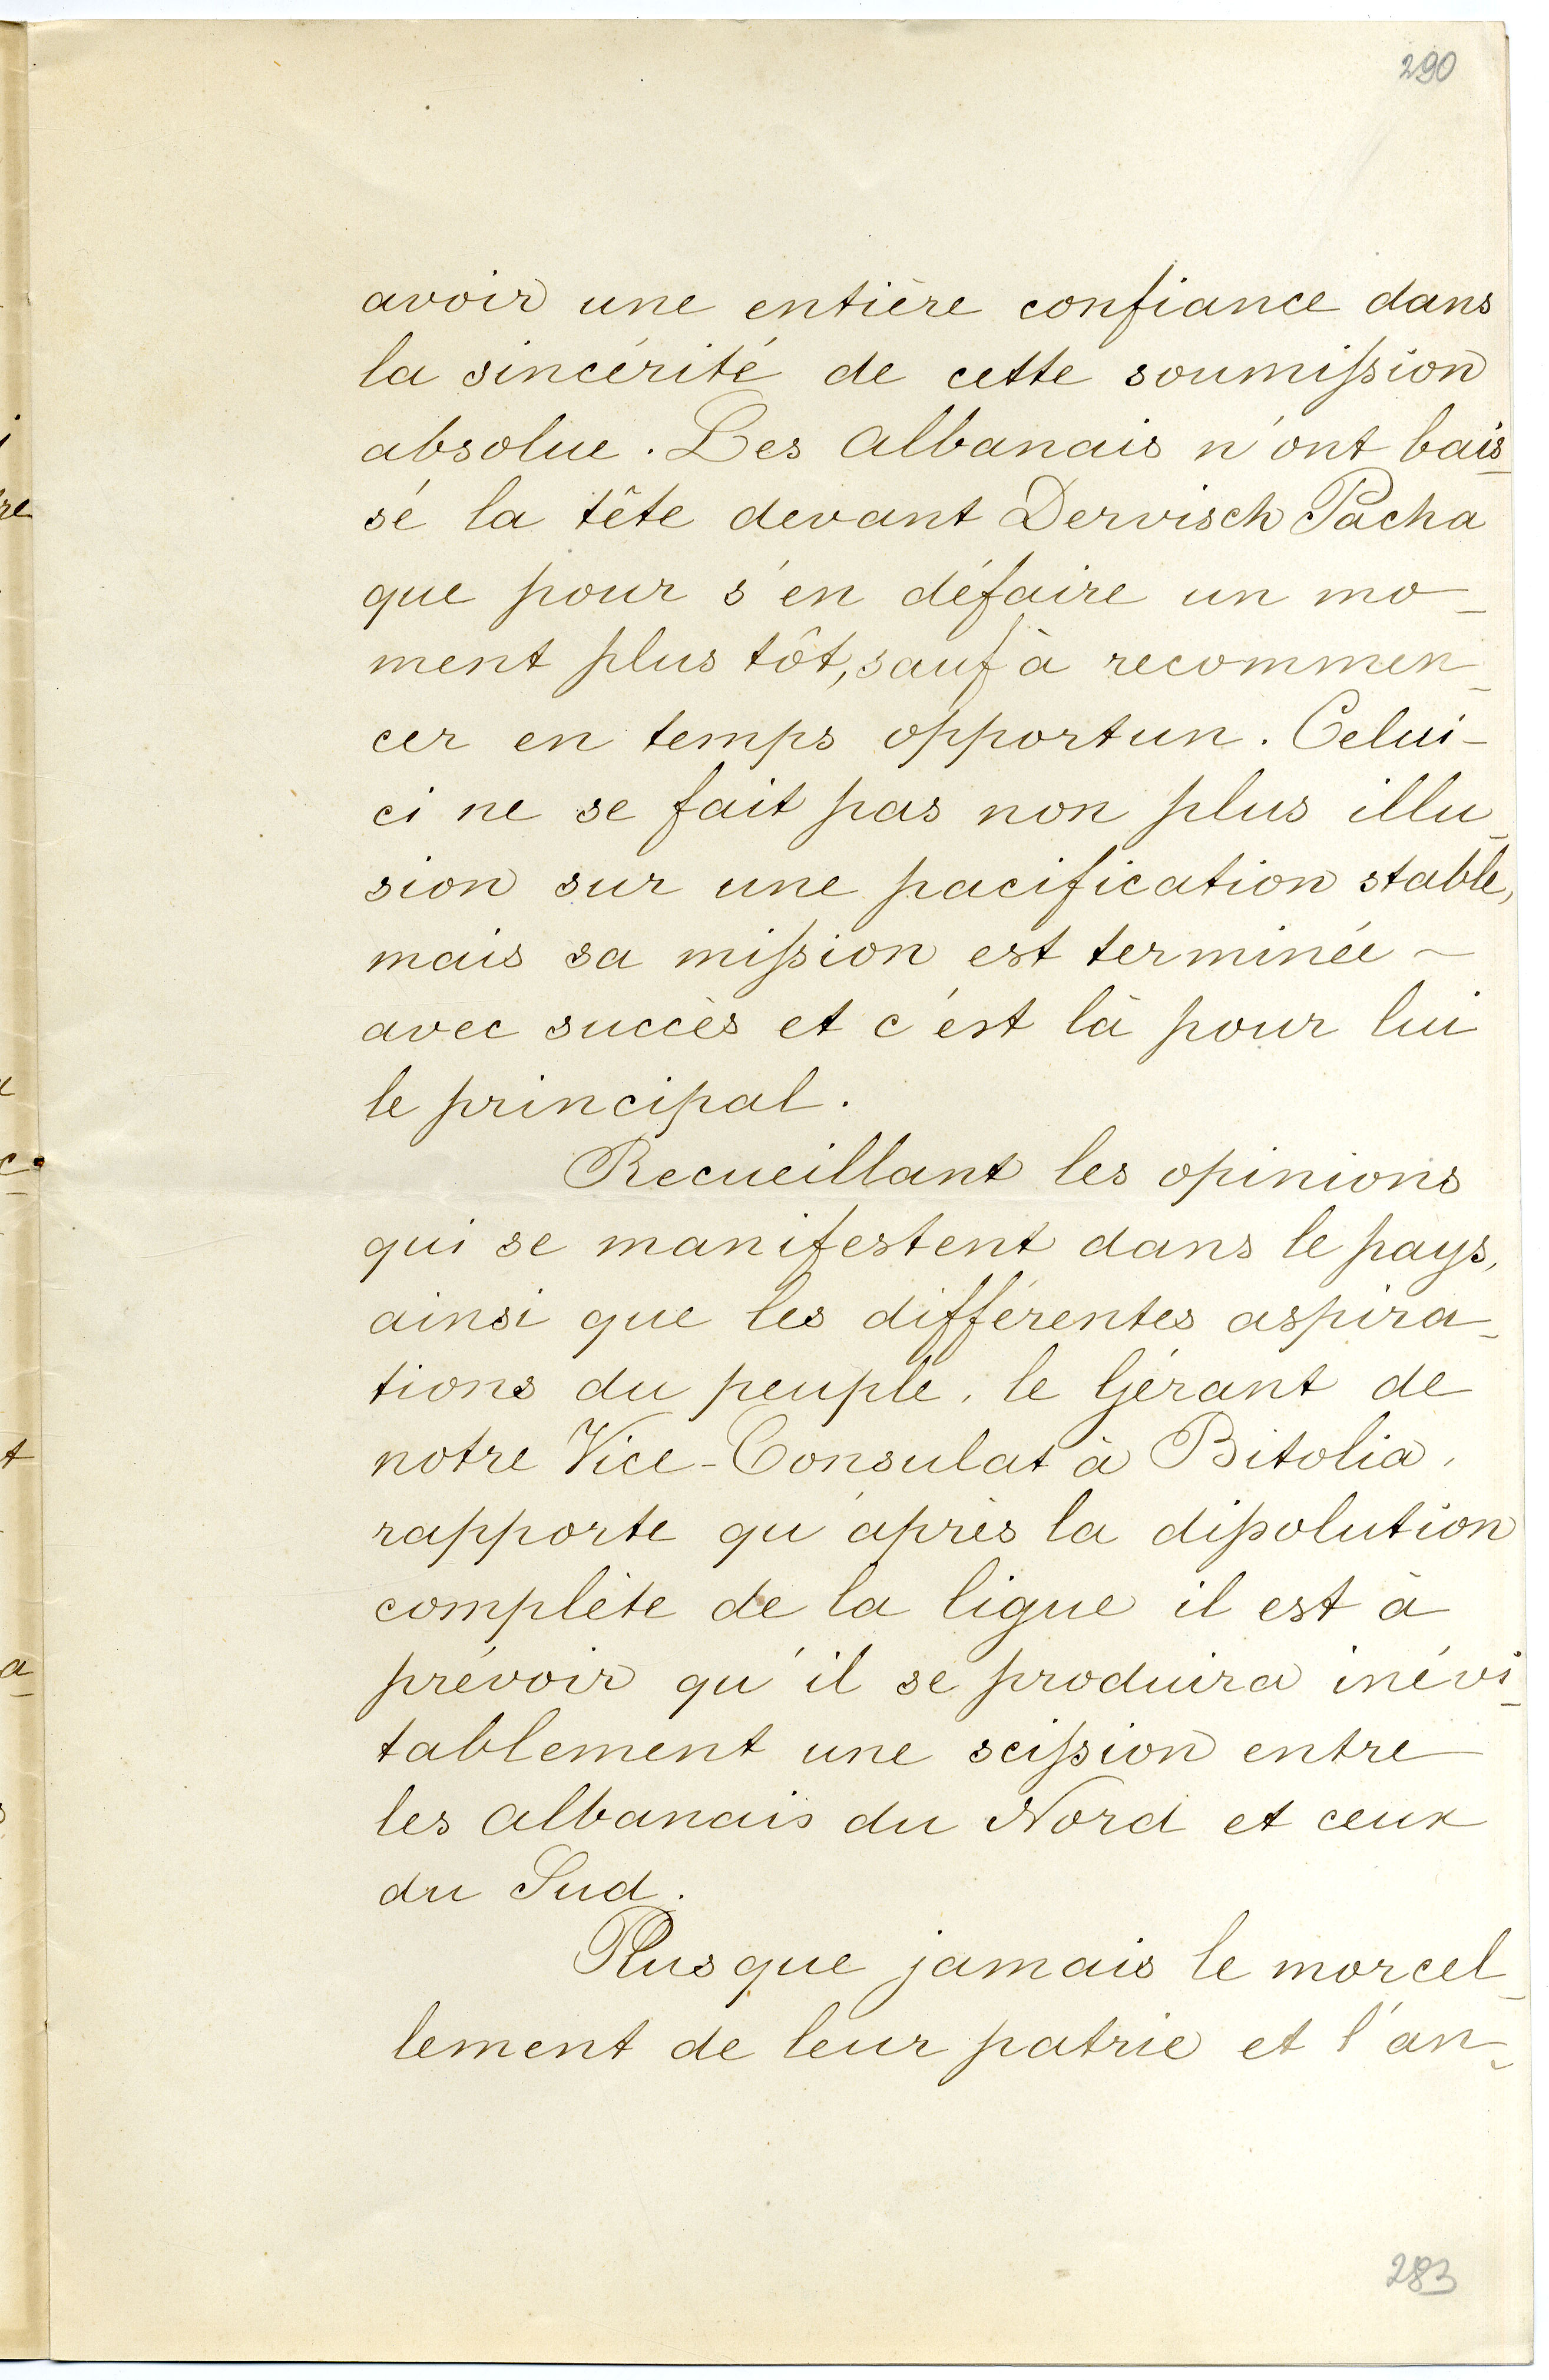 290
avoir une entière confiance dans
la sincérité de cette soumission
absolue. Les Albanais n'ont bais-
sé la tête devant Dervisch Pacha
que pour s'en défaire un mo-
ment plus tôt, sauf à recommen-
cer en temps opportun. Celui-
ci ne se fait pas non plus illu-
sion sur une pacification stable,
mais sa mission est terminée ~
avec succès et c'est là pour lui
le principal.
Recueillant les opinions
qui se manifestent dans le pays,
ainsi que les différentes aspira-
tions du peuple, le Gérant de
notre Vice-Consulat à Bitolia,
rapporte qu'après la dissolution
complète de la ligue il est à
prévoir qu'il se produira inévi-
tablement une scission entre
les Albanais du Nord et ceux
du Sud.
Plus que jamais le morcel-
lement de leur patrie et l'an-
283